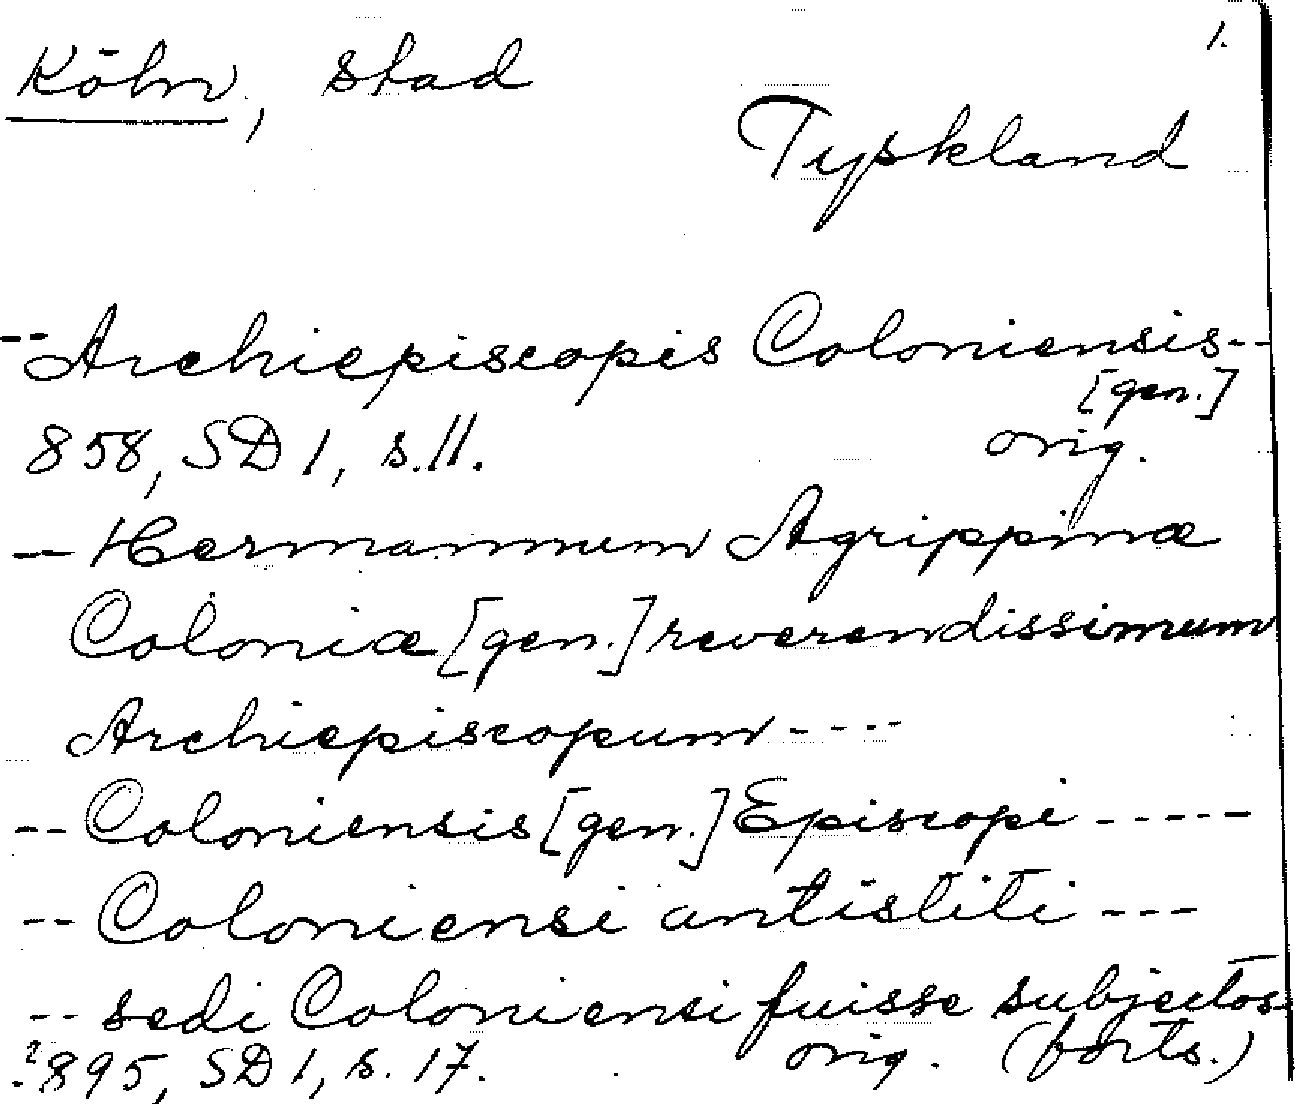 1.
Köln, stad
Tyskland
-- Archiepiscopis Coloniensis --
[gen.]
858, SD 1, s. 11. orig.
-- Hermannum Agrippinæ
Coloniæ [gen.] reverendissimum
Archiepiscopum ----
-- Coloniensis [gen.] Episcopi -----
-- Coloniensi antistiti ---
-- sedi Coloniensi fuisse subjectos
?895, SD 1, s. 17. orig. (forts.)